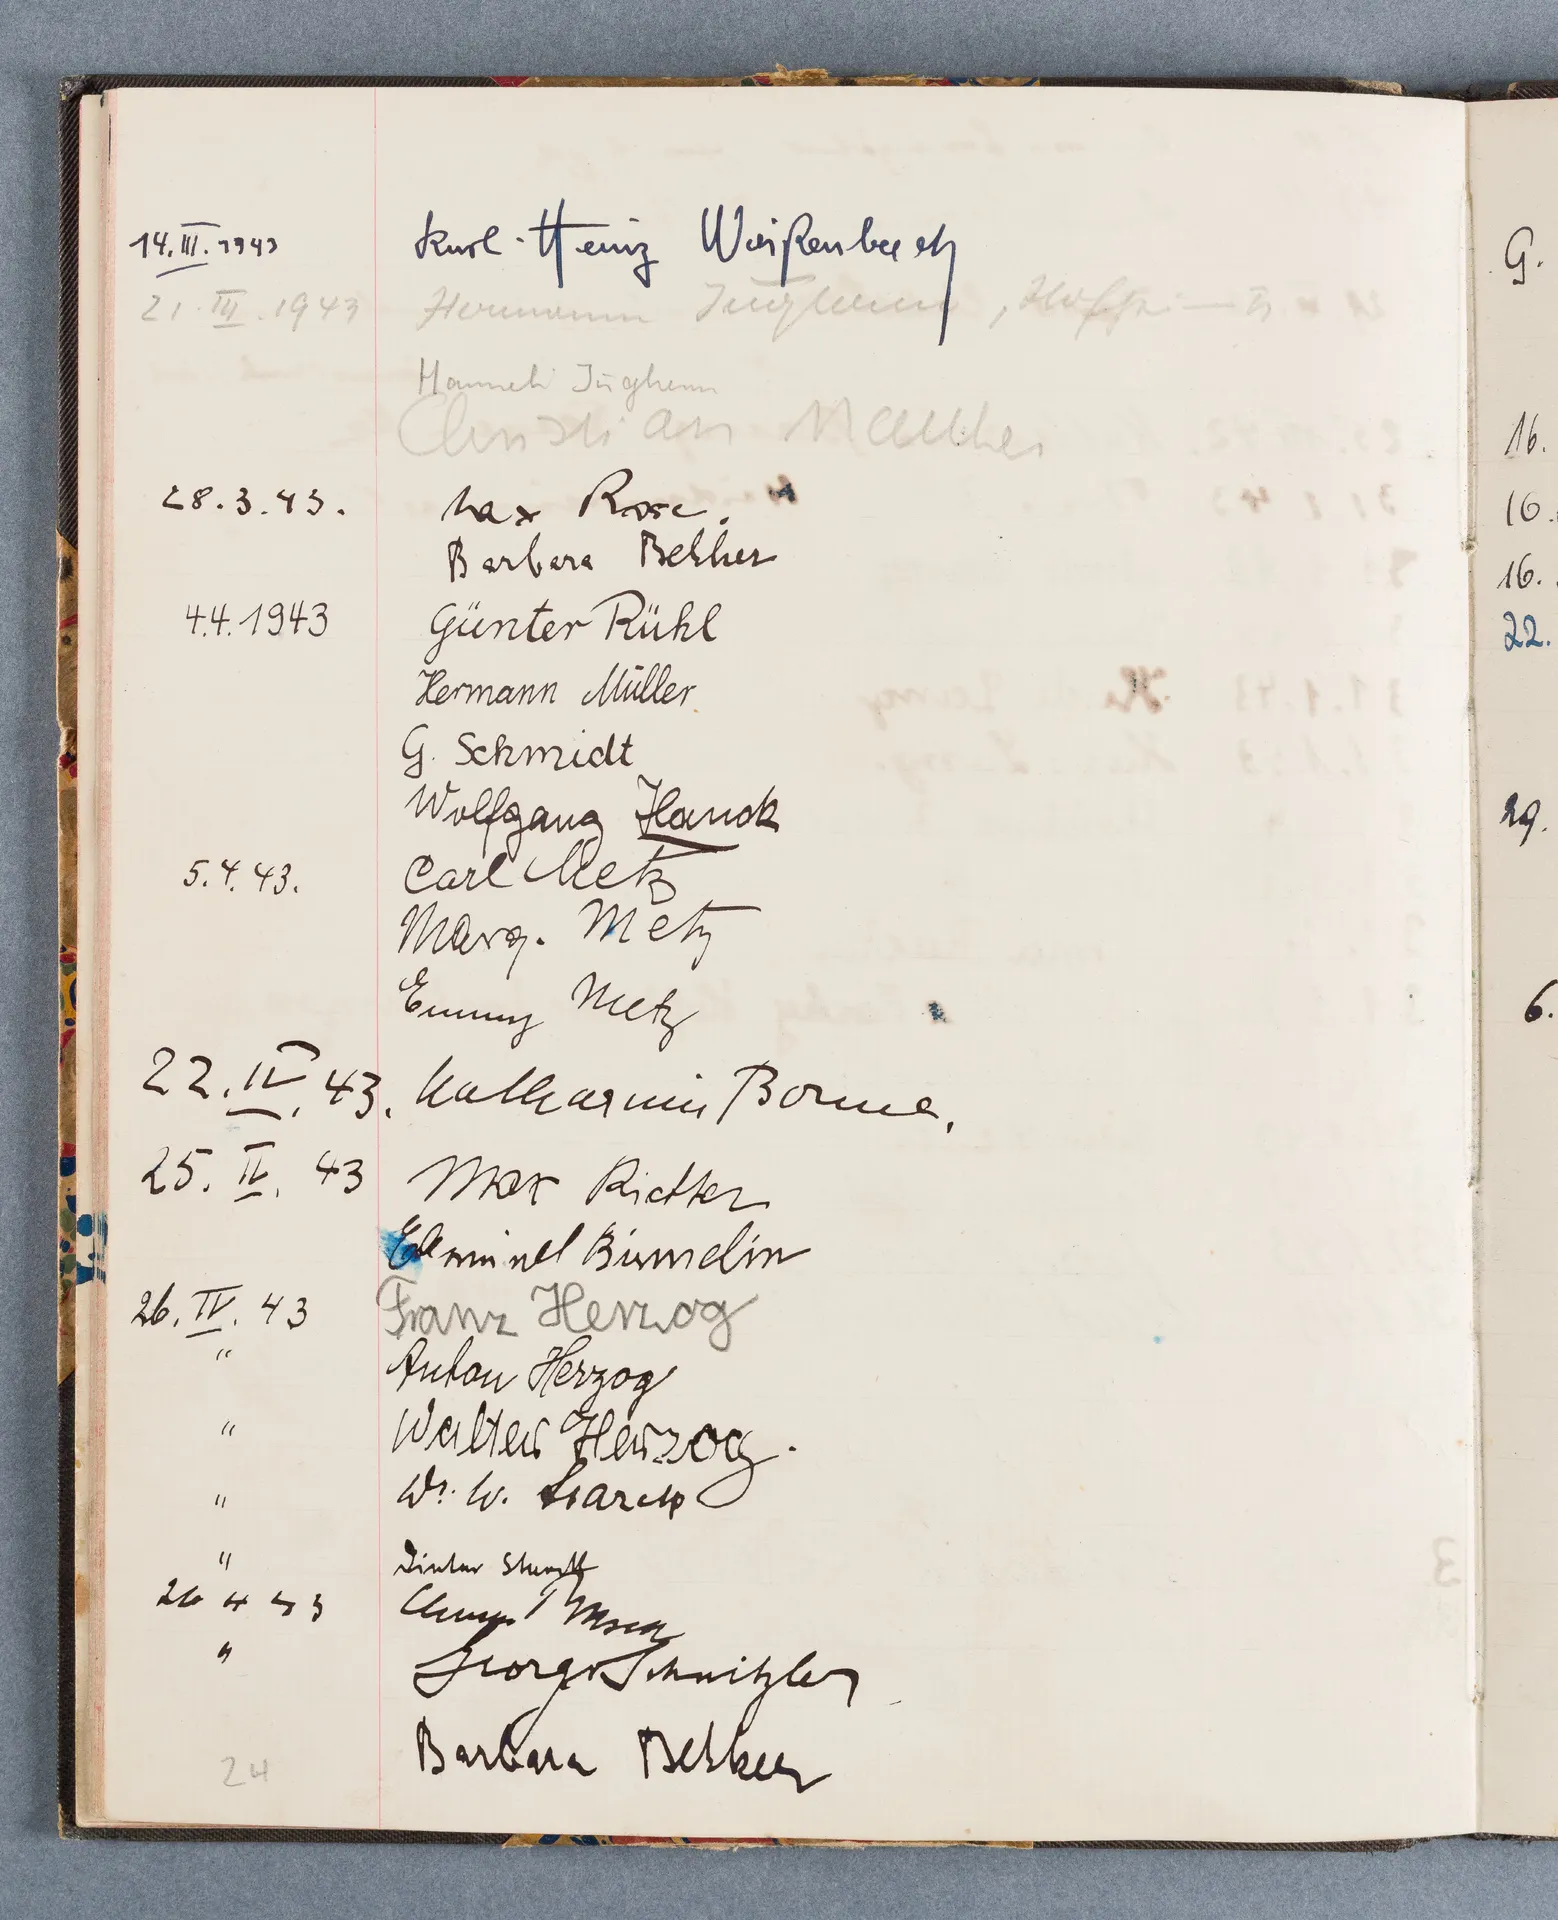 14.III.1943 Karl-Heinz Weißenbach
21.III.1943 Hermann Jughenn, Hofheim i. Ts.
Hanneli Jughenn
Christian Mather
28.3.43. Max Rose.
Barbara Bekker
4.4.1943 Günter Rühl
Hermann Müller
G. Schmidt
Wolfgang Hauck
5.4.43. Carl Metz
Marg. Metz
Emmy Metz
22.IV.43. Katharina
25.IV.43 Max Richter
Edmund
26.IV.43 Franz Herzog
" Anton Herzog
" Walter Herzog.
" W.
" Dieter
26 4 43
" Georg Schnitzler
Barbara Bekker
24
G.
16.
16.
16.
22.
29.
6.